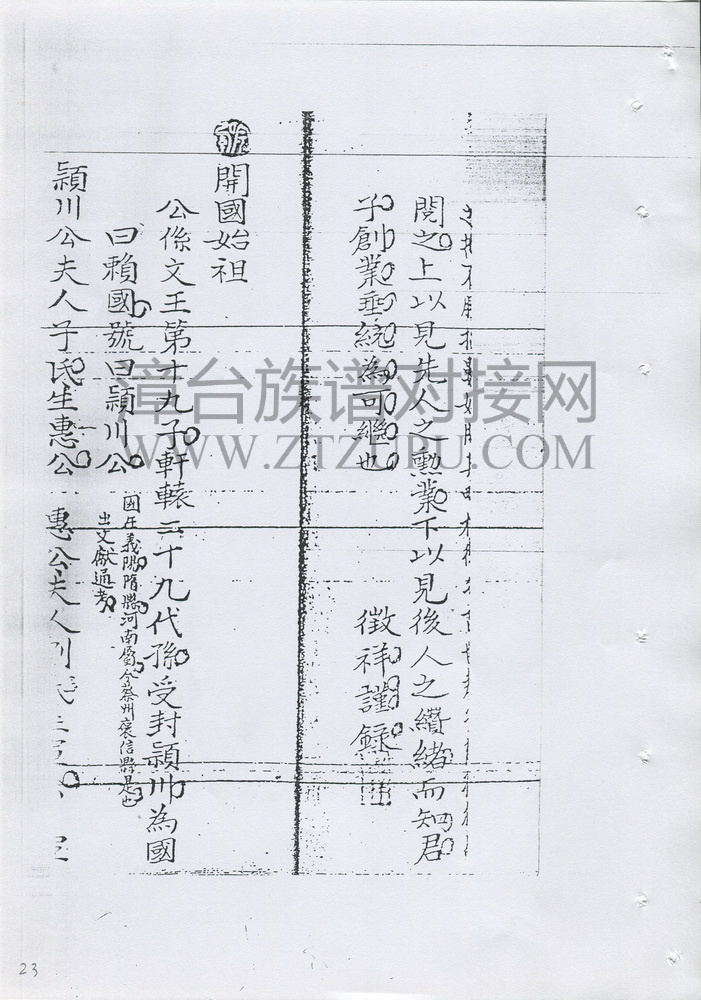 閱之上以見先人之勳業下以見後人之纘緒而知君
子創業垂統為可繼也 徵祥謹錄
開國始祖
公係文王第十九子軒轅二十九代孫受封潁川為國
曰賴國號曰潁川公 國在義陽隋縣河南屬今蔡州褒信縣是也
出文獻通考
潁川公夫人子氏生惠公 惠公夫人
漳台族谱对接网
WWW.ZTZUPU.COM
23